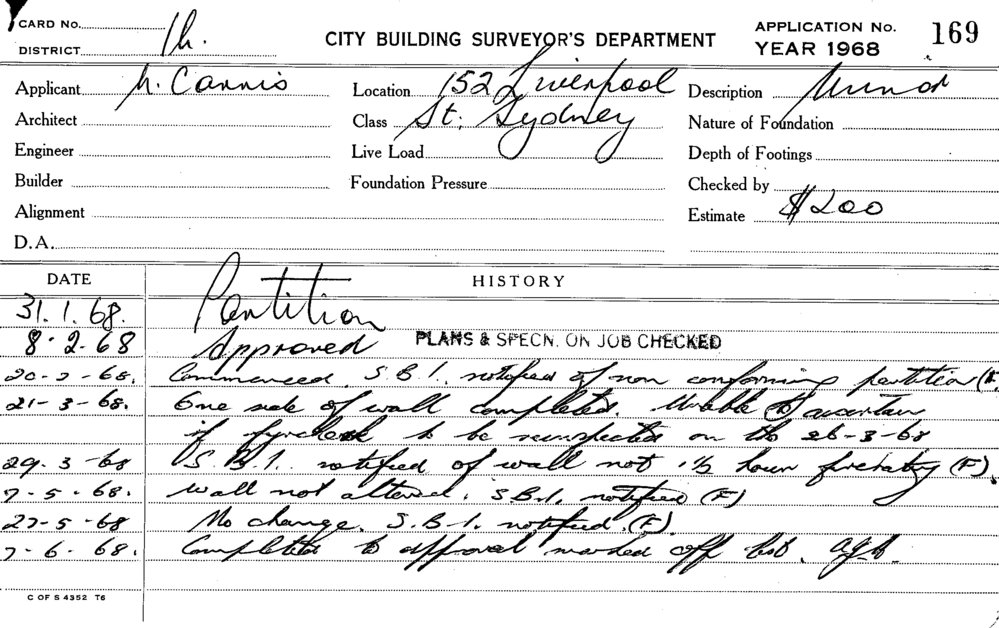 CARD No.
DISTRICT
CITY BUILDING SURVEYOR'S DEPARTMENT
APPLICATION No. 169
YEAR 1968
Applicant N. Cannis
Location 152 Liverpool
Description
Architect
Class St. Sydney
Nature of Foundation
Engineer
Live Load
Depth of Footings
Builder
Foundation Pressure
Checked by
Alignment
Estimate $200
D.A.
DATE HISTORY
31.1.68. Partition
8.2.68 Approved PLANS & SPECN. ON JOB CHECKED
68. Commenced. S.B.I. notified of non conforming partition (F
21-3-68. One side of wall completed. Unable to ascertain
if fyrchek to be reinspected on the 26-3-68
29.3-68 S.B.I. notified of wall not 1½ hour firerating (F).
7-5-68. Wall not altered. S.B.I. notified (F)
27-5-68 No change. S.B.I. notified. (F).
7-6-68. Completed to approval marked off list.
C OF S 4352 T6